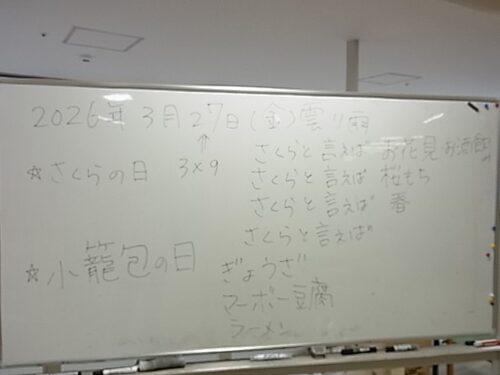 2026年 3月27日(金)雲り雨
↑
☆さくらの日 3×9
さくらと言えば お花見 お酒飲
さくらと言えば 桜もち
さくらと言えば 春
さくらと言えば
☆小籠包の日
ぎょうざ
マーボー豆腐
ラーメン